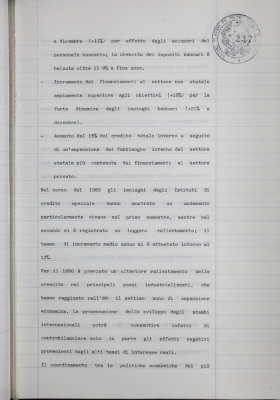 a dicembre (+13%) per effetto degli scioperi del
personale bancario; la crescita dei depositi bancari è
balzata oltre il 9% a fine anno.
- Incremento dei finanziamenti al settore non statale
ampiamente superiore agli obiettivi (+18%) per la
forte dinamica degli impieghi bancari (+21% a
dicembre).
- Aumento del 15% del credito totale interno a seguito
di un'espansione del fabbisogno interno del settore
statale più contenuta dei finanziamenti al settore
privato.
Nel corso del 1989 gli impieghi degli Istituti di
credito speciale hanno mostrato un andamento
particolarmente vivace nel primo semestre, mentre nel
secondo si è registrato un leggero rallentamento; il
tasso di incremento medio annuo si è attestato intorno al
17%.
Per il 1990 è previsto un ulteriore rallentamento della
crescita nei principali paesi industrializzati, che
hanno raggiunto nell'89 il settimo anno di espansione
economica. La prosecuzione dello sviluppo degli scambi
internazionali potrà consentire infatti di
controbilanciare solo in parte gli effetti negativi
provenienti dagli alti tassi di interesse reali.
Il coordinamento tra le politiche economiche dei più